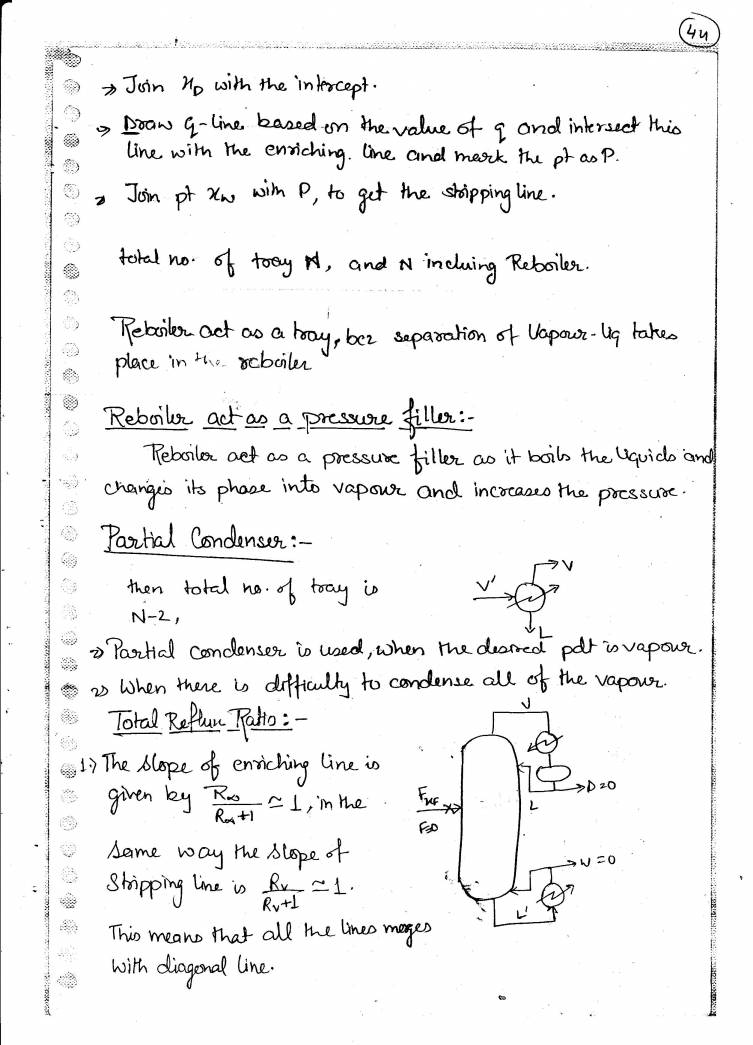 44
→ Join xD with the intercept.
→ Draw q-line based on the value of q and intersect this
line with the enriching. line and mark the pt as P.
→ Join pt xw with P, to get the stripping line.
total no. of tray N, and N incluing Reboiler.
Reboiler act as a tray, bcz separation of Vapour-liq takes
place in the reboiler
Reboiler act as a pressure filler:-
Reboiler act as a pressure filler as it boils the liquids and
changes its phase into vapour and increases the pressure.
Partial Condenser:-
then total no. of tray is
N-2,
V'
V
L
→ Partial condenser is used, when the desired pdt is vapour.
2) When there is difficulty to condense all of the vapour.
Total Reflux Ratio:-
1.) The slope of enriching line is
given by R∞/R∞+1 ≃ 1, in the
same way the slope of
Stripping line is Rv/Rv+1 ≃ 1.
This means that all the lines meges
with diagonal line.
V
D=0
L
F xF
F=0
W=0
L'